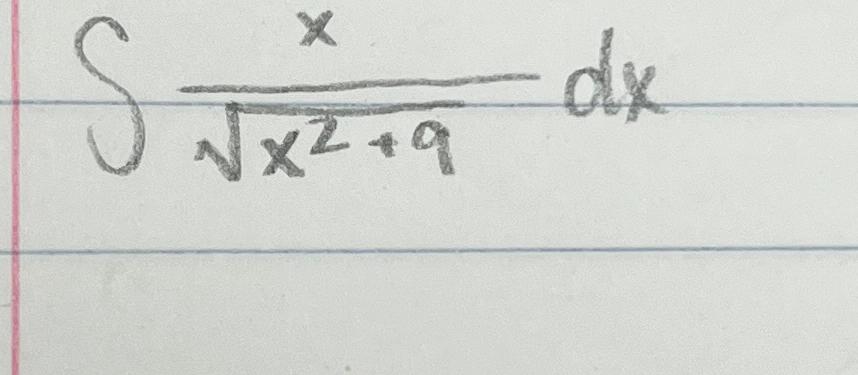 ∫ x/√(x² + 9) dx